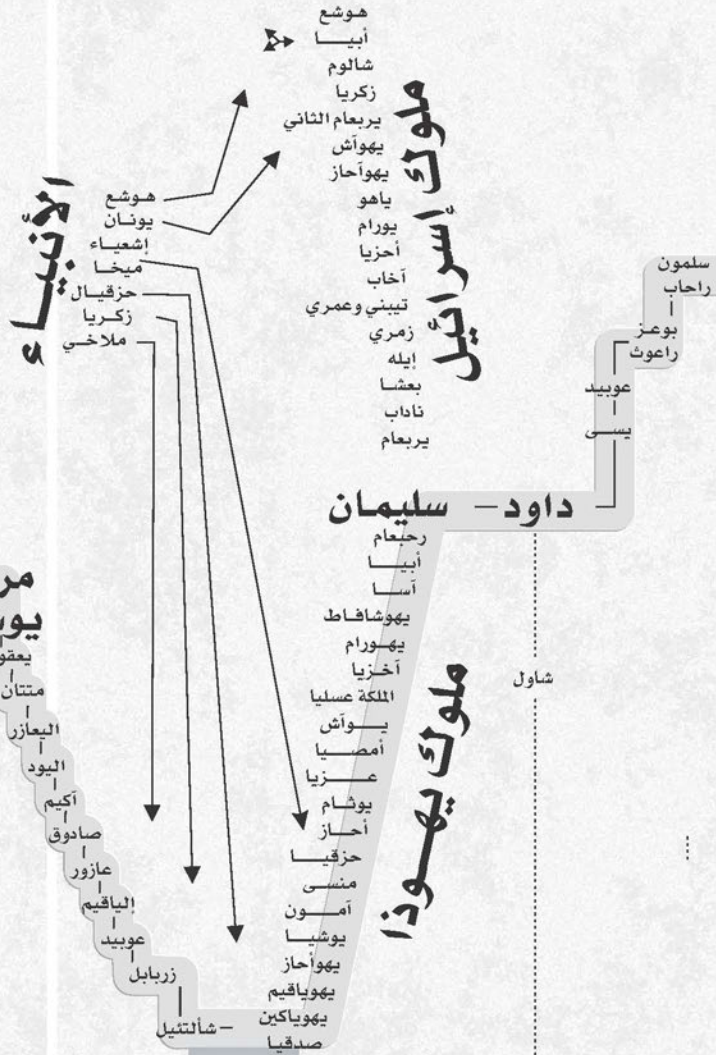 هوشع
أبيــا
شالوم
زكريا
يربعام الثاني
يهوآش
يهوآحاز
ياهو
يورام
أحزيا
آخاب
تيبني وعمري
زمري
إيله
بعشا
ناداب
يربعام
ملوك إسرائيل
الأنبيـاء
هوشع
يونـان
إشعيـاء
ميخـا
حزقيـال
زكـريا
ملاخـي
سلمون
راحاب
بوعـز
راعوث
عوبيد
يســى
داود – سليمان
رحبعام
أبيــا
آســا
يهوشافـاط
يهـورام
آخـزيا
الملكة عسليا
يـــوآش
أمصــيا
عـــزيا
يوثـام
أحـاز
حزقيــا
منسى
آمـــون
يوشيــا
يهوآحاز
يهوياقيم
يهوياكين
صدقيـا
ملوك يهــوذا
شاول
متتان
اليعازر
اليود
آكيم
صادوق
عازور
إلياقيم
عوبيد
زربابل
شألتئيل